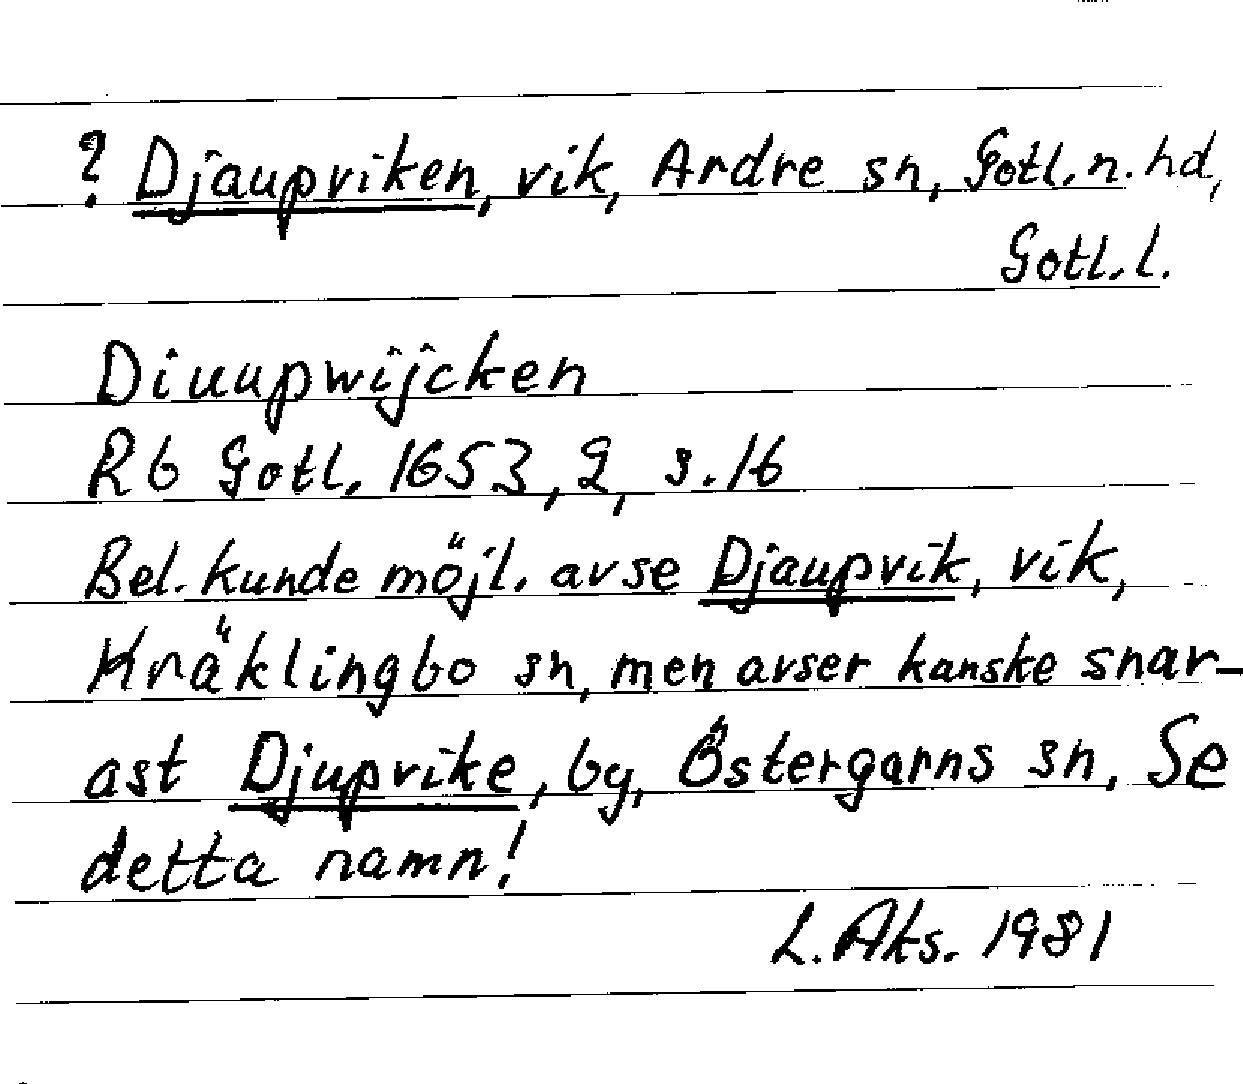 ? Djaupviken, vik, Ardre sn, Gotl. n. hd,
Gotl. l.
Diuupwijcken
Rb Gotl. 1653, 2, s. 16
Bel. kunde möjl. avse Djaupvik, vik,
Kräklingbo sn, men avser kanske snar-
ast Djupvike, by, Östergarns sn, Se
detta namn!
L. Aks. 1981